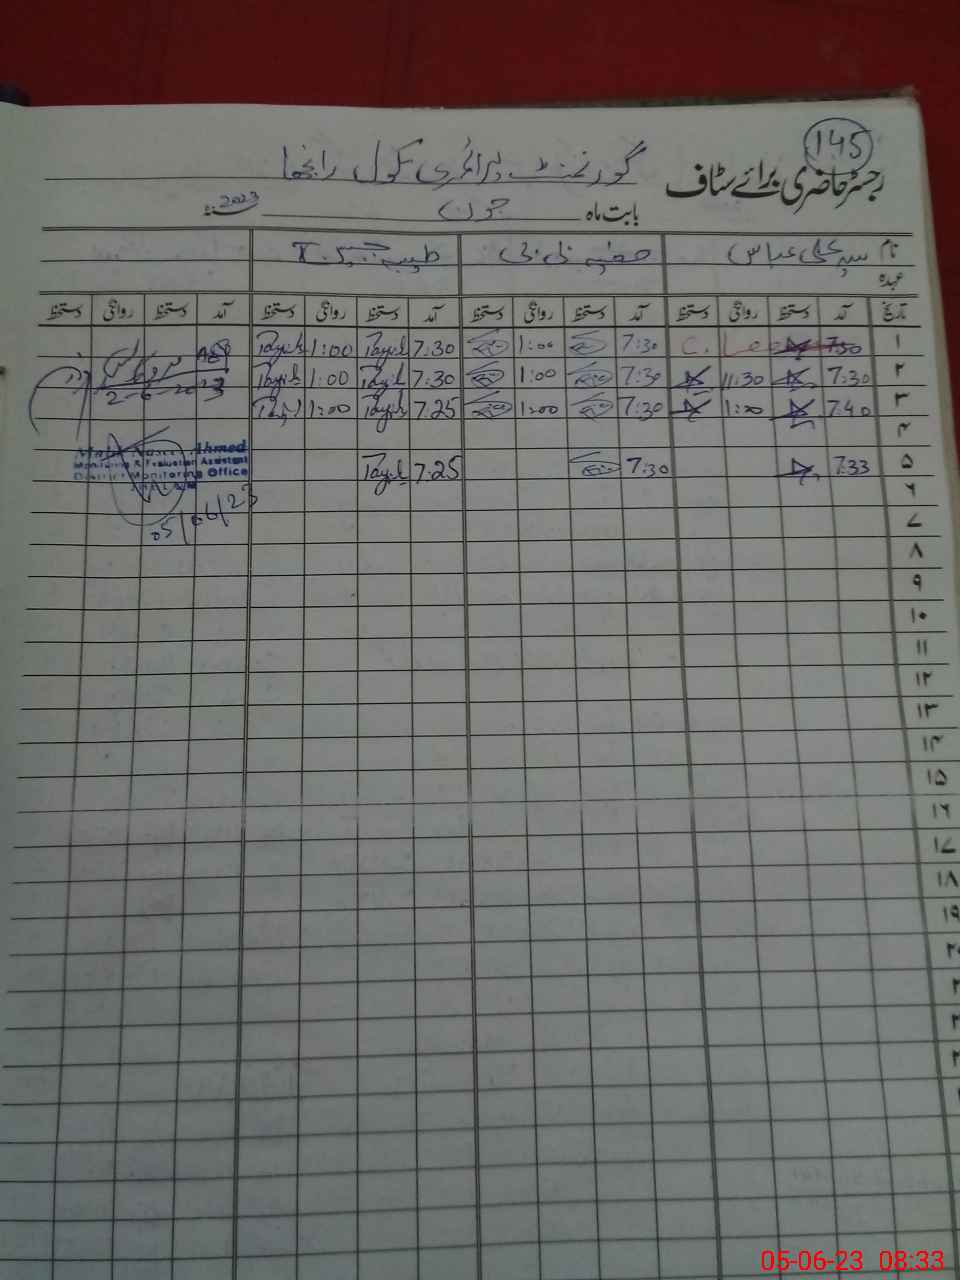 145
رجسٹر حاضری برائے سٹاف
گورنمنٹ پرائمری سکول رانجھا
بابت ماہ جون 2023
نام سید علی عباس بی بی طیبہ
عہدہ
تاریخ آمد دستخط روانگی دستخط آمد دستخط روانگی دستخط آمد دستخط روانگی دستخط آمد دستخط روانگی دستخط
۱ 7:30 C. Leave 7:30 1:00 7:30 1:00
۲ 7:30 11:30 7:30 1:00 7:30 1:00
2-6-2023
۳ 7:40 1:00 7:30 1:00 7:25 1:00
۴
۵ 7:33 7:30 7:25
Ahmed
Monitoring & Evaluation Assistant
District Monitoring Office
05/06/23
۶
۷
۸
۹
۱۰
۱۱
۱۲
۱۳
۱۴
۱۵
۱۶
۱۷
۱۸
۱۹
05-06-23 08:33